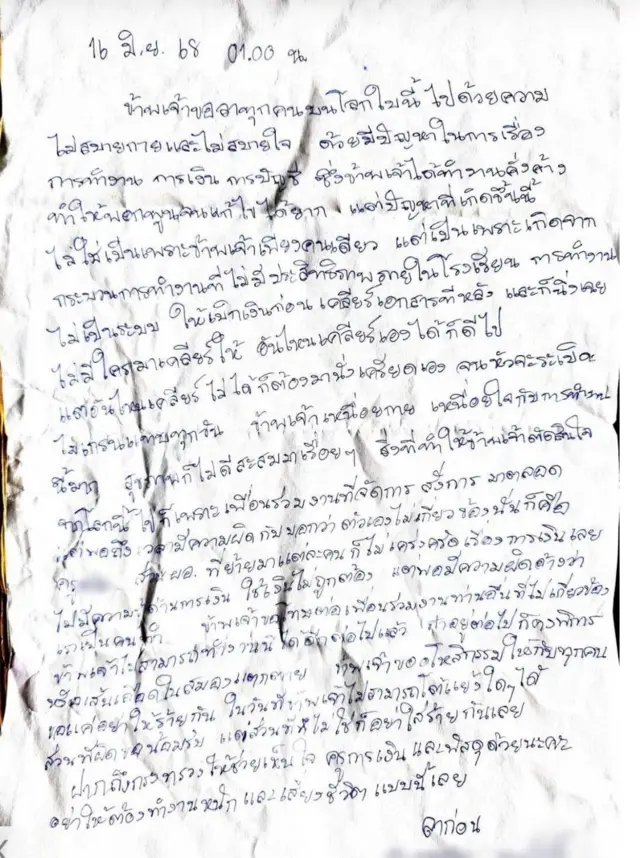 16 มิ.ย. 68 01.00 น.
ข้าพเจ้าขอลาทุกคนบนโลกใบนี้ ไปด้วยความ
ไม่สบายกายและไม่สบายใจ ด้วยมีปัญหาในการเรื่อง
การทำงาน การเงิน การบัญชี ซึ่งข้าพเจ้าได้ทำงานคั่งค้าง
ทำให้พอกพูนจนแก้ไขได้ยาก แต่ปัญหาที่เกิดขึ้นนี้
ไม่ใช่เป็นเพราะข้าพเจ้าเพียงคนเดียว แต่เป็นเพราะเกิดจาก
กระบวนการทำงานที่ไม่มีประสิทธิภาพภายในโรงเรียน การทำงาน
ไม่เป็นระบบ ให้เบิกเงินก่อน เคลียร์เอกสารทีหลัง และก็นิ่งเฉย
ไม่มีใครมาเคลียร์ให้ อันไหนเคลียร์เองได้ก็ดีไป
แต่อันไหนเคลียร์ไม่ได้ ก็ต้องมานั่งเครียดเอง จนหัวจะระเบิด
ไมเกรนแทบทุกวัน ข้าพเจ้าเหนื่อยกาย เหนื่อยใจกับการทำงาน
นี้มาก สุขภาพก็ไม่ดีสะสมมาเรื่อยๆ สิ่งที่ทำให้ข้าพเจ้าตัดสินใจ
จากโลกนี้ไปก็เพราะเพื่อนร่วมงานที่จัดการ สั่งการ มาตลอด
แต่พอถึงเวลามีความผิด กับบอกว่า ตัวเองไม่เกี่ยวข้องนั่นก็คือ
ครู ส่วน ผอ. ที่ย้ายมาแต่ละคน ก็ไม่เคร่งครัด เรื่องการเงินเลย
ไปมีความ ด้านการเงิน ใช้เงินไม่ถูกต้อง แต่พอมีความผิดอ้างว่า
เราเป็นคนทำ ข้าพเจ้าขอโทษต่อเพื่อนร่วมงานท่านอื่นที่ไม่เกี่ยวข้อง
ข้าพเจ้าไม่สามารถ ได้อีกต่อไปแล้ว ถ้าอยู่ต่อไปก็คงพิการ
หรือเส้นเลือดในสมองแตกตาย ข้าพเจ้าขออโหสิกรรมให้กับทุกคน
ขอแค่อย่าให้ร้ายกัน ในวันที่ข้าพเจ้าไม่สามารถโต้แย้งใดๆ ได้
ส่วนที่ผิดขอน้อมรับ แต่ส่วนที่ไม่ใช่ก็อย่าใส่ร้ายกันเลย
ฝากถึงกระทรวงให้ช่วยเห็นใจ ครูการเงิน และพัสดุด้วยนะคะ
อย่าให้ต้องทำงานหนัก และเสี่ยงชีวิต แบบนี้เลย
ลาก่อน